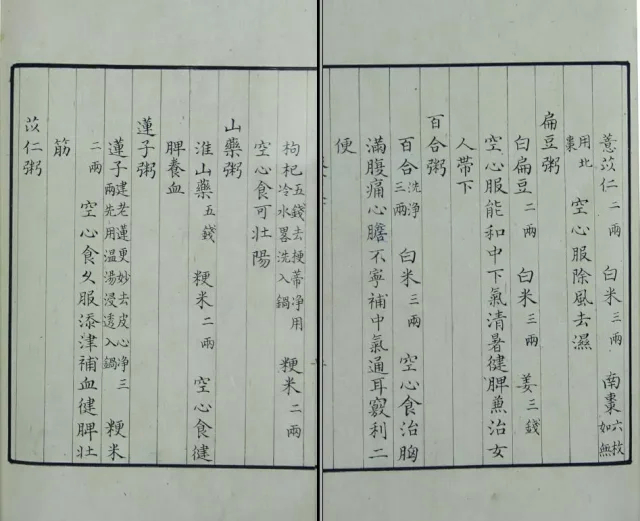 薏苡仁 二兩 白米 三兩 南棗 六枚如無
用北棗 空心服除風去濕
扁豆粥
白扁豆 二兩 白米 三兩 姜 三錢
空心服能和中下氣清暑徤脾兼治女
人帶下
百合粥
百合 洗净三兩 白米 三兩 空心食治胸
滿腹痛心膽不寧補中氣通耳竅利二
便
枸杞 五錢去梗蒂净用冷水畧洗入鍋 粳米 二兩
空心食可壯陽
山藥粥
淮山藥 五錢 粳米 二兩 空心食徤
脾養血
蓮子粥
蓮子 建老蓮更妙去皮心净三兩先用溫湯浸透入鍋 粳米
二兩 空心食久服添津補血徤脾壯
筋
苡仁粥